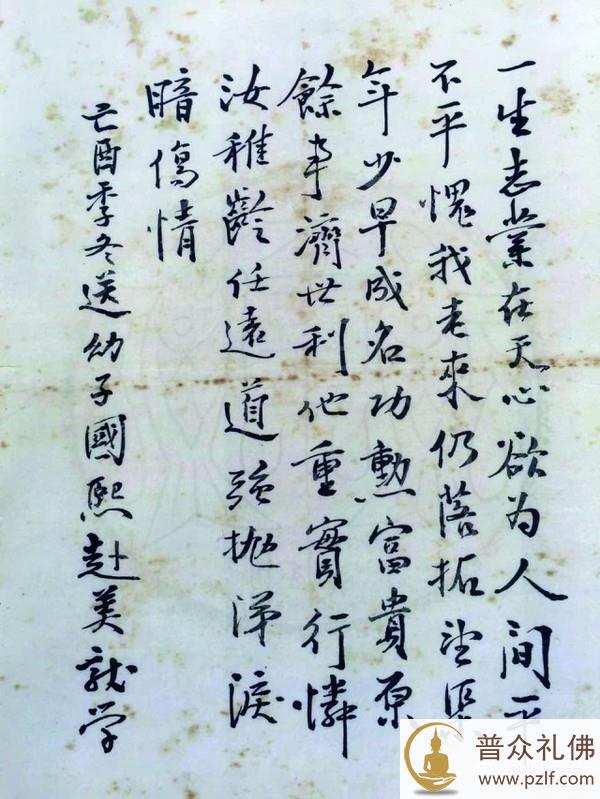 一生志業在天心欲为人间平
不平愧我老來仍落拓望渠
年少早成名功勳富貴原
餘事濟世利他重實行憐
汝稚齡任遠道強拋涕淚
暗傷情
己酉季冬送幼子國熙赴美就学
普众礼佛
www.pzlf.com